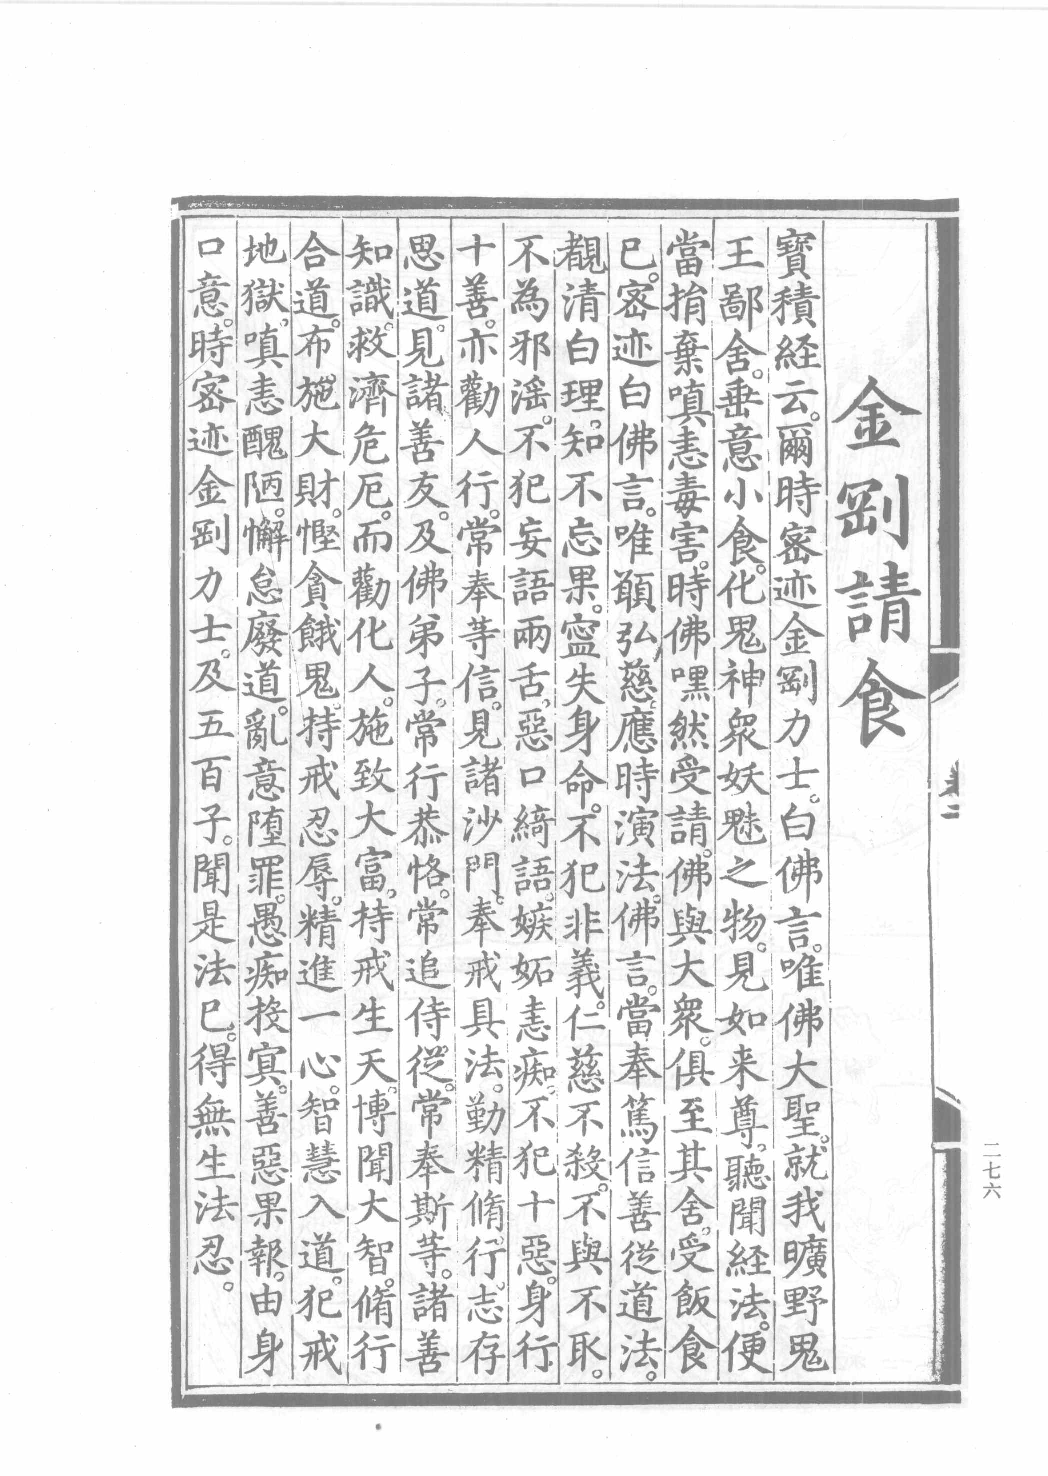 金剛請食
寶積経云。爾時密迹金剛力士。白佛言。唯佛大聖。就我曠野鬼
王鄙舍。垂意小食。化鬼神衆妖魅之物。見如来尊。聽聞経法。便
當捐棄嗔恚毒害。時佛嘿然受請。佛與大衆。俱至其舍。受飯食
已。密迹白佛言。唯願弘慈。應時演法。佛言。當奉篤信善従道法。
覩清白理。知不忘果。寧失身命。不犯非義。仁慈不殺。不與不取。
不為邪淫。不犯妄語兩舌。惡口綺語。嫉妬恚痴。不犯十惡。身行
十善。亦勸人行。常奉等信。見諸沙門、奉戒具法。勤精脩行。志存
思道。見諸善友。及佛弟子。常行恭恪。常追侍従。常奉斯等。諸善
知識。救濟危厄。而勸化人。施致大富。持戒生天。博聞大智。脩行
合道。布施大財。慳貪餓鬼。持戒忍辱。精進一心。智慧入道。犯戒
地獄。嗔恚醜陋。懈怠廢道。亂意堕罪。愚痴投冥。善惡果報。由身
口意。時密迹金剛力士。及五百子。聞是法已。得無生法忍。
卷二
二七六